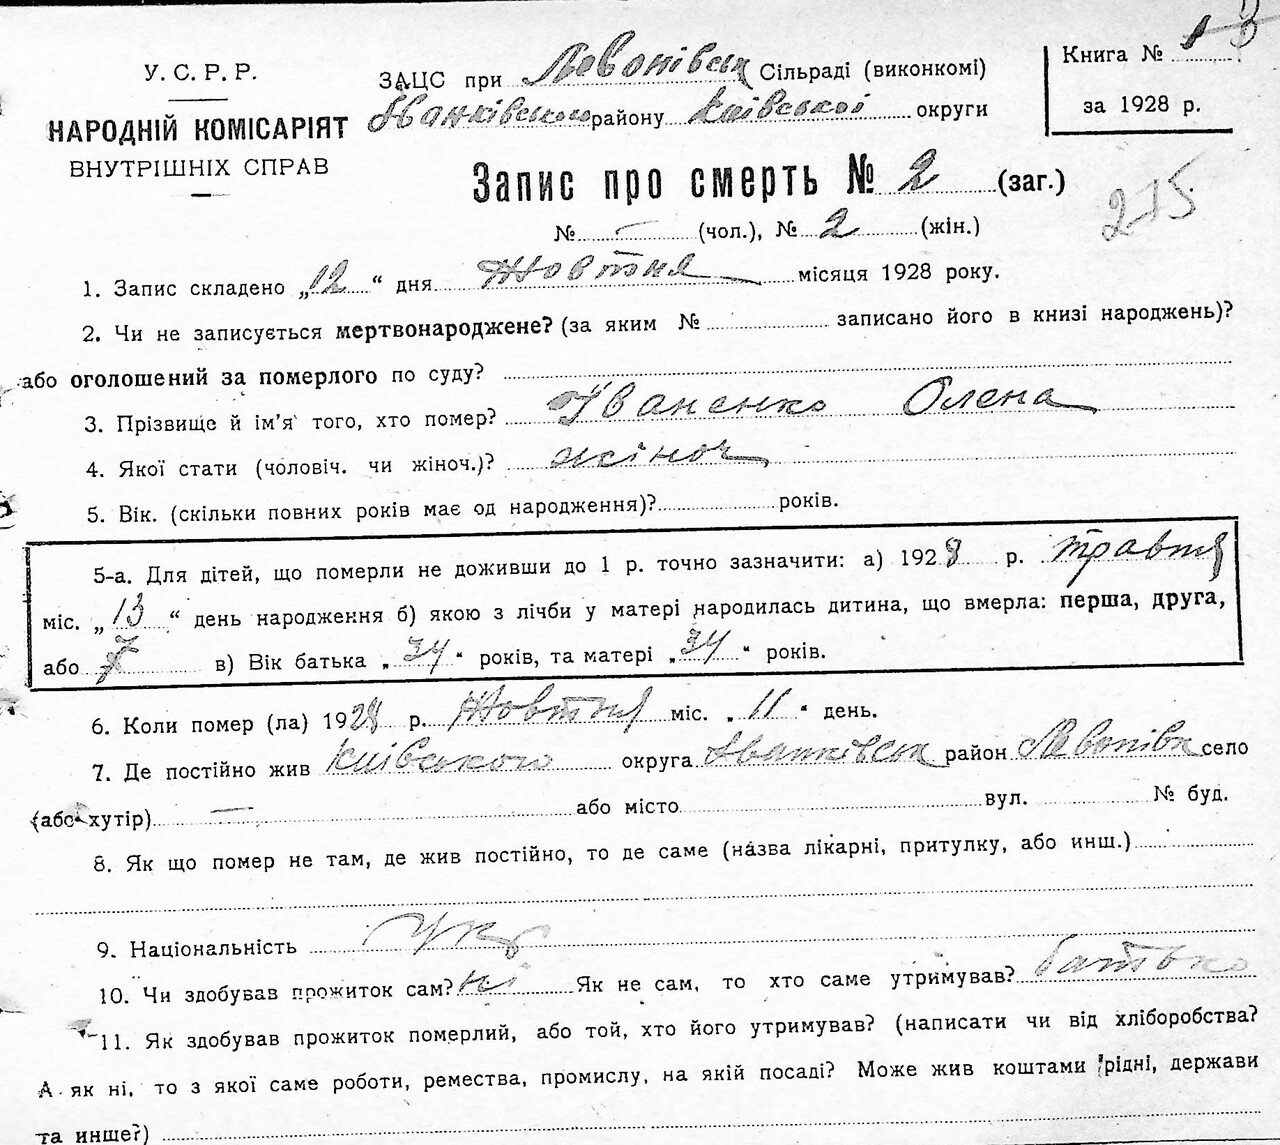 У. С. Р. Р.
НАРОДНІЙ КОМІСАРІЯТ
ВНУТРІШНІХ СПРАВ
ЗАЦС при Левонівськ Сільраді (виконкомі)
Іванківського району Київської округи
Книга № 1
за 1928 р.
Запис про смерть № 2 (заг.)
№ — (чол.), № 2 (жін.)
215
1. Запис складено „12“ дня Жовтня місяця 1928 року.
2. Чи не записується мертвонароджене? (за яким № записано його в книзі народжень)?
або оголошений за померлого по суду?
3. Прізвище й ім'я того, хто помер? Іваненко Олена
4. Якої стати (чоловіч. чи жіноч.)? жіноч
5. Вік. (скільки повних років має од народження)? років.
5-а. Для дітей, що померли не доживши до 1 р. точно зазначити: а) 1928 р. травня
міс. „13“ день народження б) якою з лічби у матері народилась дитина, що вмерла: перша, друга,
або 7 в) Вік батька „34“ років, та матері „34“ років.
6. Коли помер (ла) 1928 р. Жовтня міс. „11“ день.
7. Де постійно жив Київського округа Іванківськ район Левонівк село
(або хутір) — або місто вул. № буд.
8. Як що помер не там, де жив постійно, то де саме (назва лікарні, притулку, або инш.)
9. Національність Укр
10. Чи здобував прожиток сам? ні Як не сам, то хто саме утримував? батько
11. Як здобував прожиток померлий, або той, хто його утримував? (написати чи від хліборобства?
А як ні, то з якої саме роботи, ремества, промислу, на якій посаді? Може жив коштами рідні, держави
та инше?)